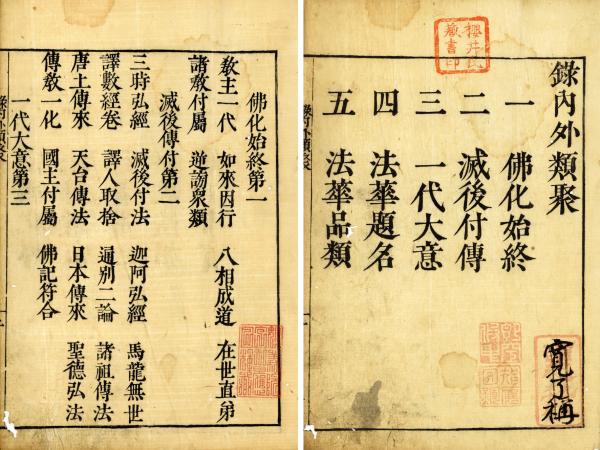 錄內外類聚
一 佛化始終
二 滅後付傳
三 一代大意
四 法華題名
五 法華品類
櫻井氏
藏書印
寬了稱
佛化始終第一
敎主一代 如來因行 八相成道 在世直弟
諸敎付屬 逆謗衆類
滅後傳付第二
三時弘經 滅後付法 迦阿弘經 馬龍無世
譯數經卷 譯人取捨 通別二論 諸祖傳法
唐土傳來 天台傳法 日本傳來 聖德弘法
傳敎一化 國主付屬 佛記符合
一代大意第三